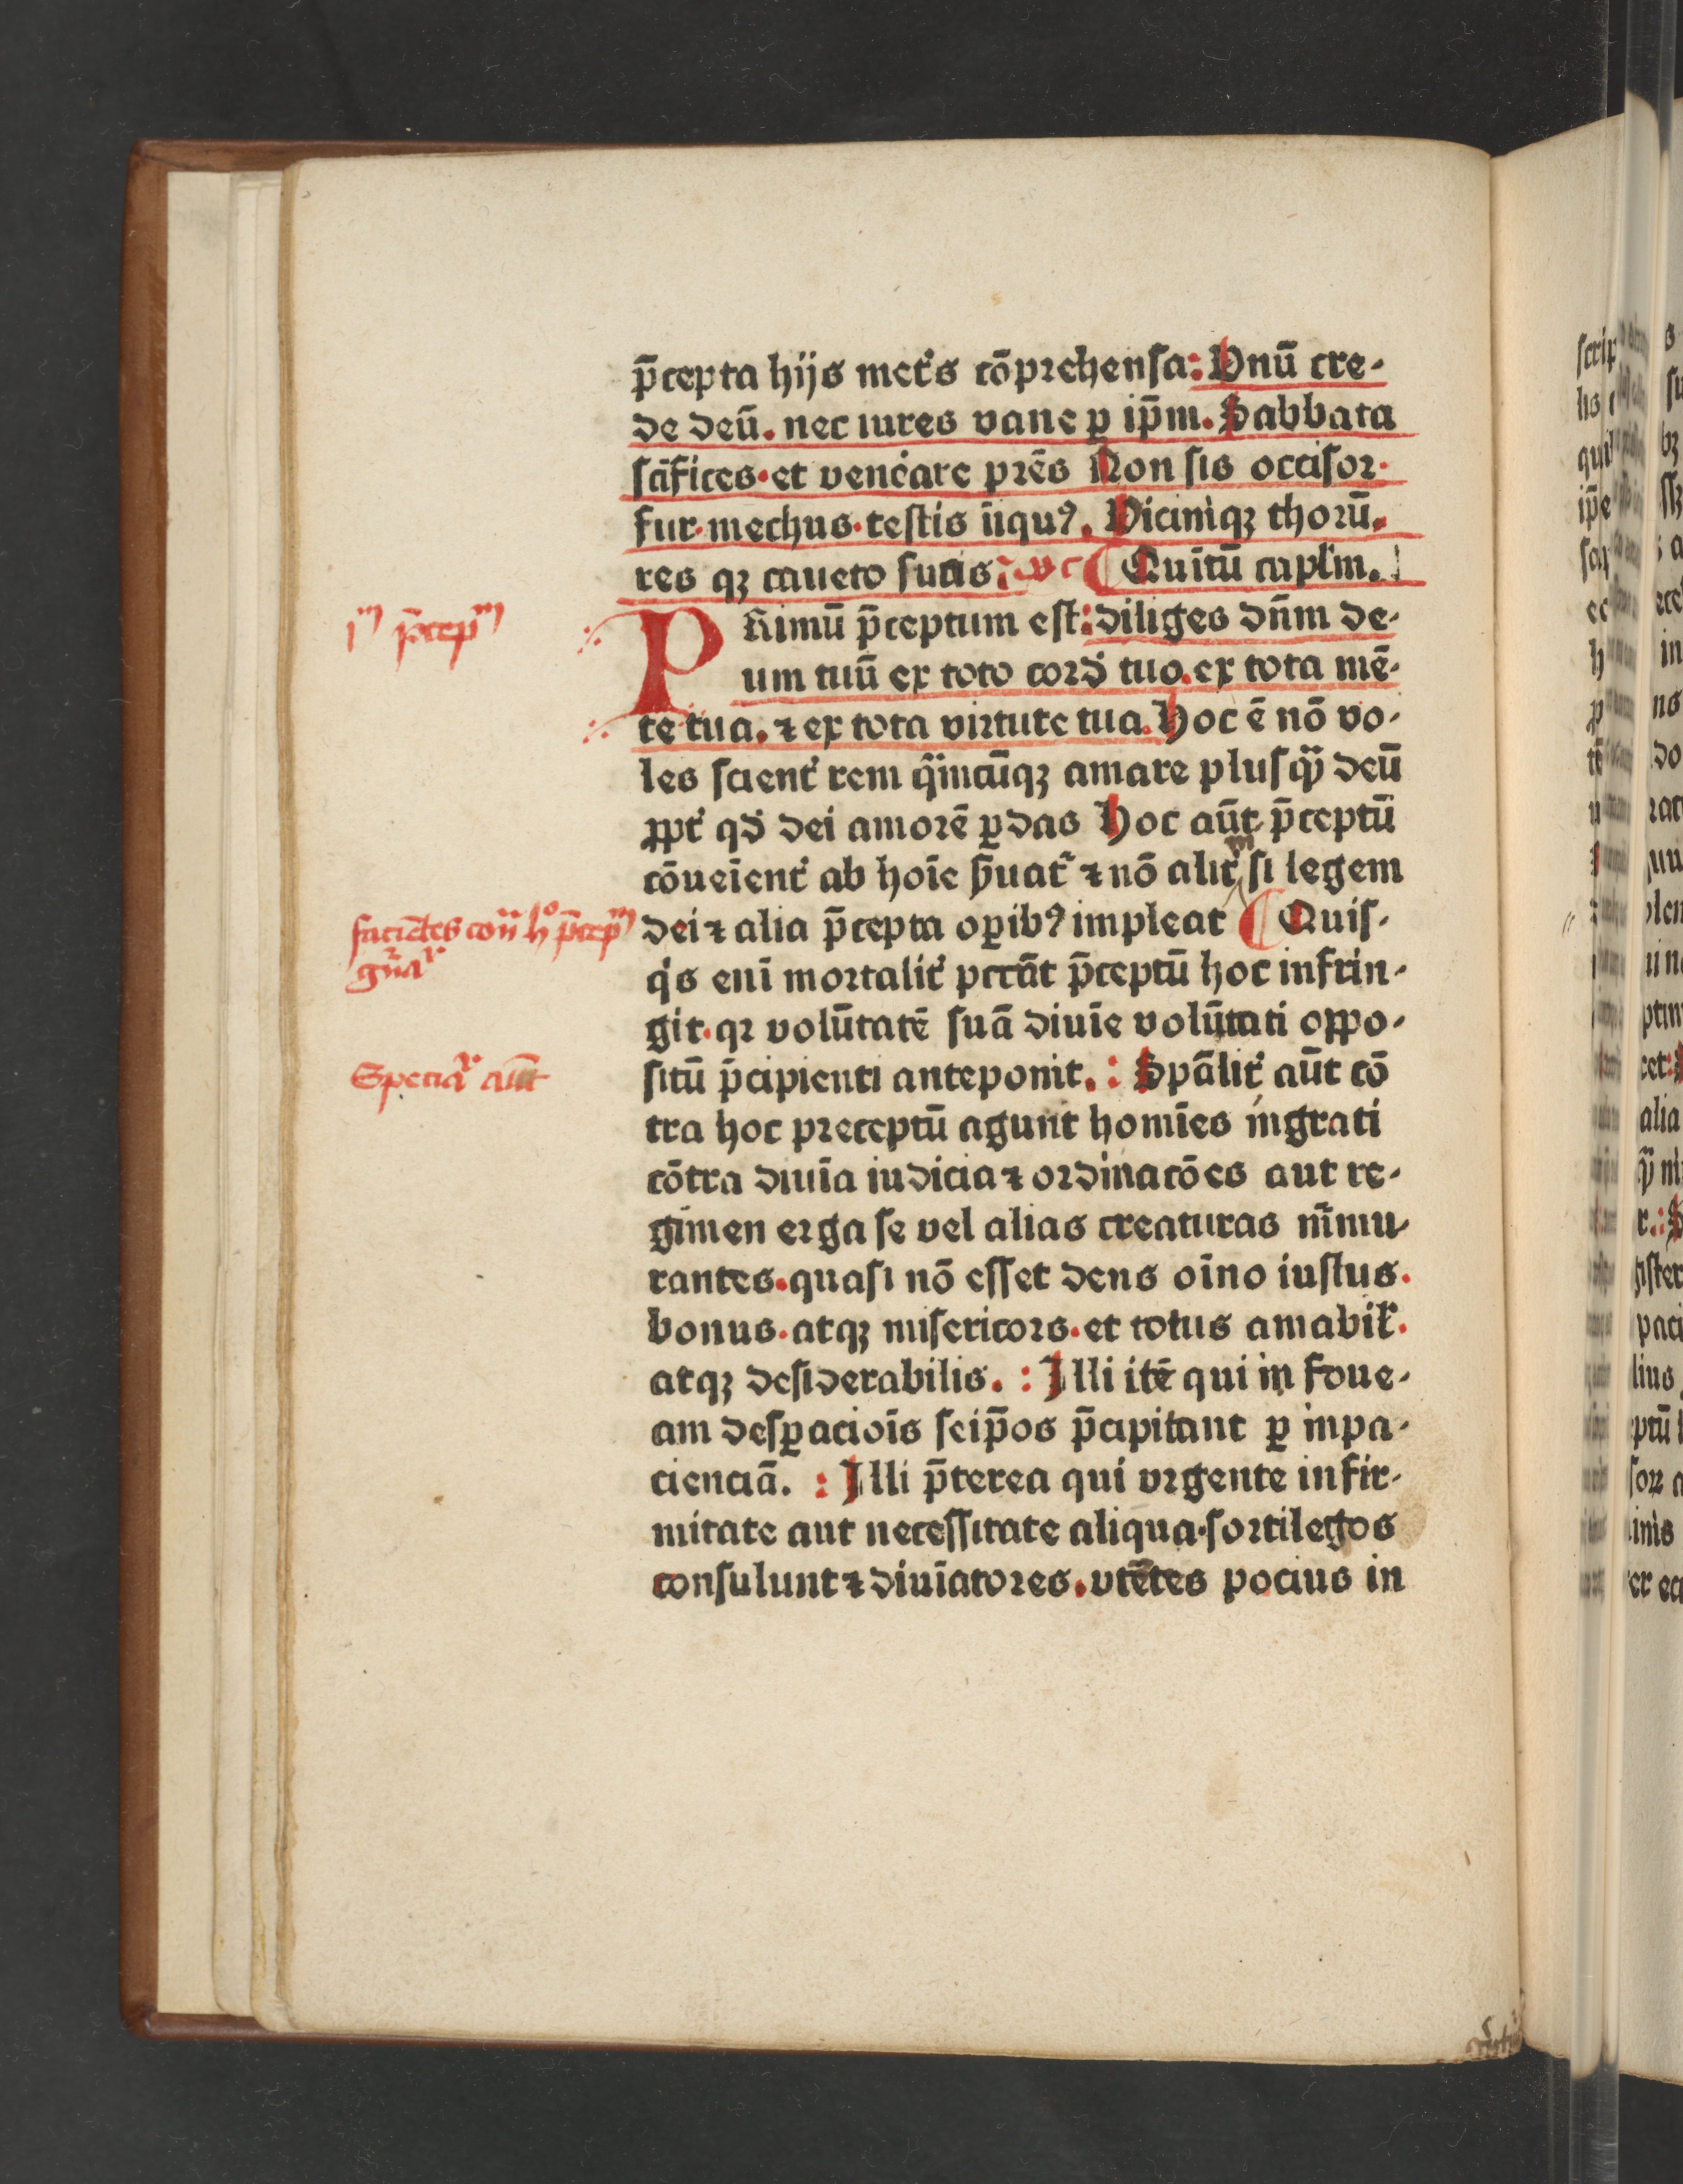 p̄cepta hijs met͛s cōprehensa: Vnū cre-
de deū. nec iures vane ꝑ ip̄m. Sabbata
sc̄ifices· et vene͛are pre͞s Non sis occisor·
fur· mechus· testis iniquꝰ. Viciniqꝫ thorū.
res qꝫ caueto suas: Quītū capl'm.
PRimū p̄ceptum est: diliges dn̄m de-
um tuū ex toto cord͛ tuo. ex tota mē-
te tua. ⁊ ex tota virtute tua. Hoc ē nō vo-
les scient͛ rem qͣmcūqꝫ amare plusqͣ̃ deū
ꝓpt͛ qd͛ dei amorē ꝑdas Hoc aūt p̄ceptū
cōueīent͛ ab hoīe ẜuat͛ ⁊ nō alit͛ si legem
dei ⁊ alia p̄cepta oꝑibꝰ impleat ¶ Quis-
q͛s enī mortalit͛ peccāt p̄ceptū hoc infrin-
git. qꝛ volūtatē suā diuīe volūtati oppo-
sitū p̄cipienti anteponit. : Sp̄alit͛ aūt cō
tra hoc preceptū agunt homīes ingrati
cōtra diuīa iudicia ⁊ ordinacōes aut re-
gimen erga se vel alias creaturas m̄mu-
rantes. quasi nō esset deus oīno iustus.
bonus· atqꝫ misericors· et totus amabil͛.
atqꝫ desiderabilis. : Illi itē qui in foue-
am desꝑacioīs seip̄os p̄cipitant ꝑ inpa-
cienciā. : Illi p̄terea qui vrgente infir-
mitate aut necessitate aliqua· sortilegos
consulunt ⁊ diuīatores. vtētes pocius in
jᵐ p̄cepᵐ
faciētes con̄ hº p̄cepᵐ
gn̄aͬ
Speciaͬ aūt